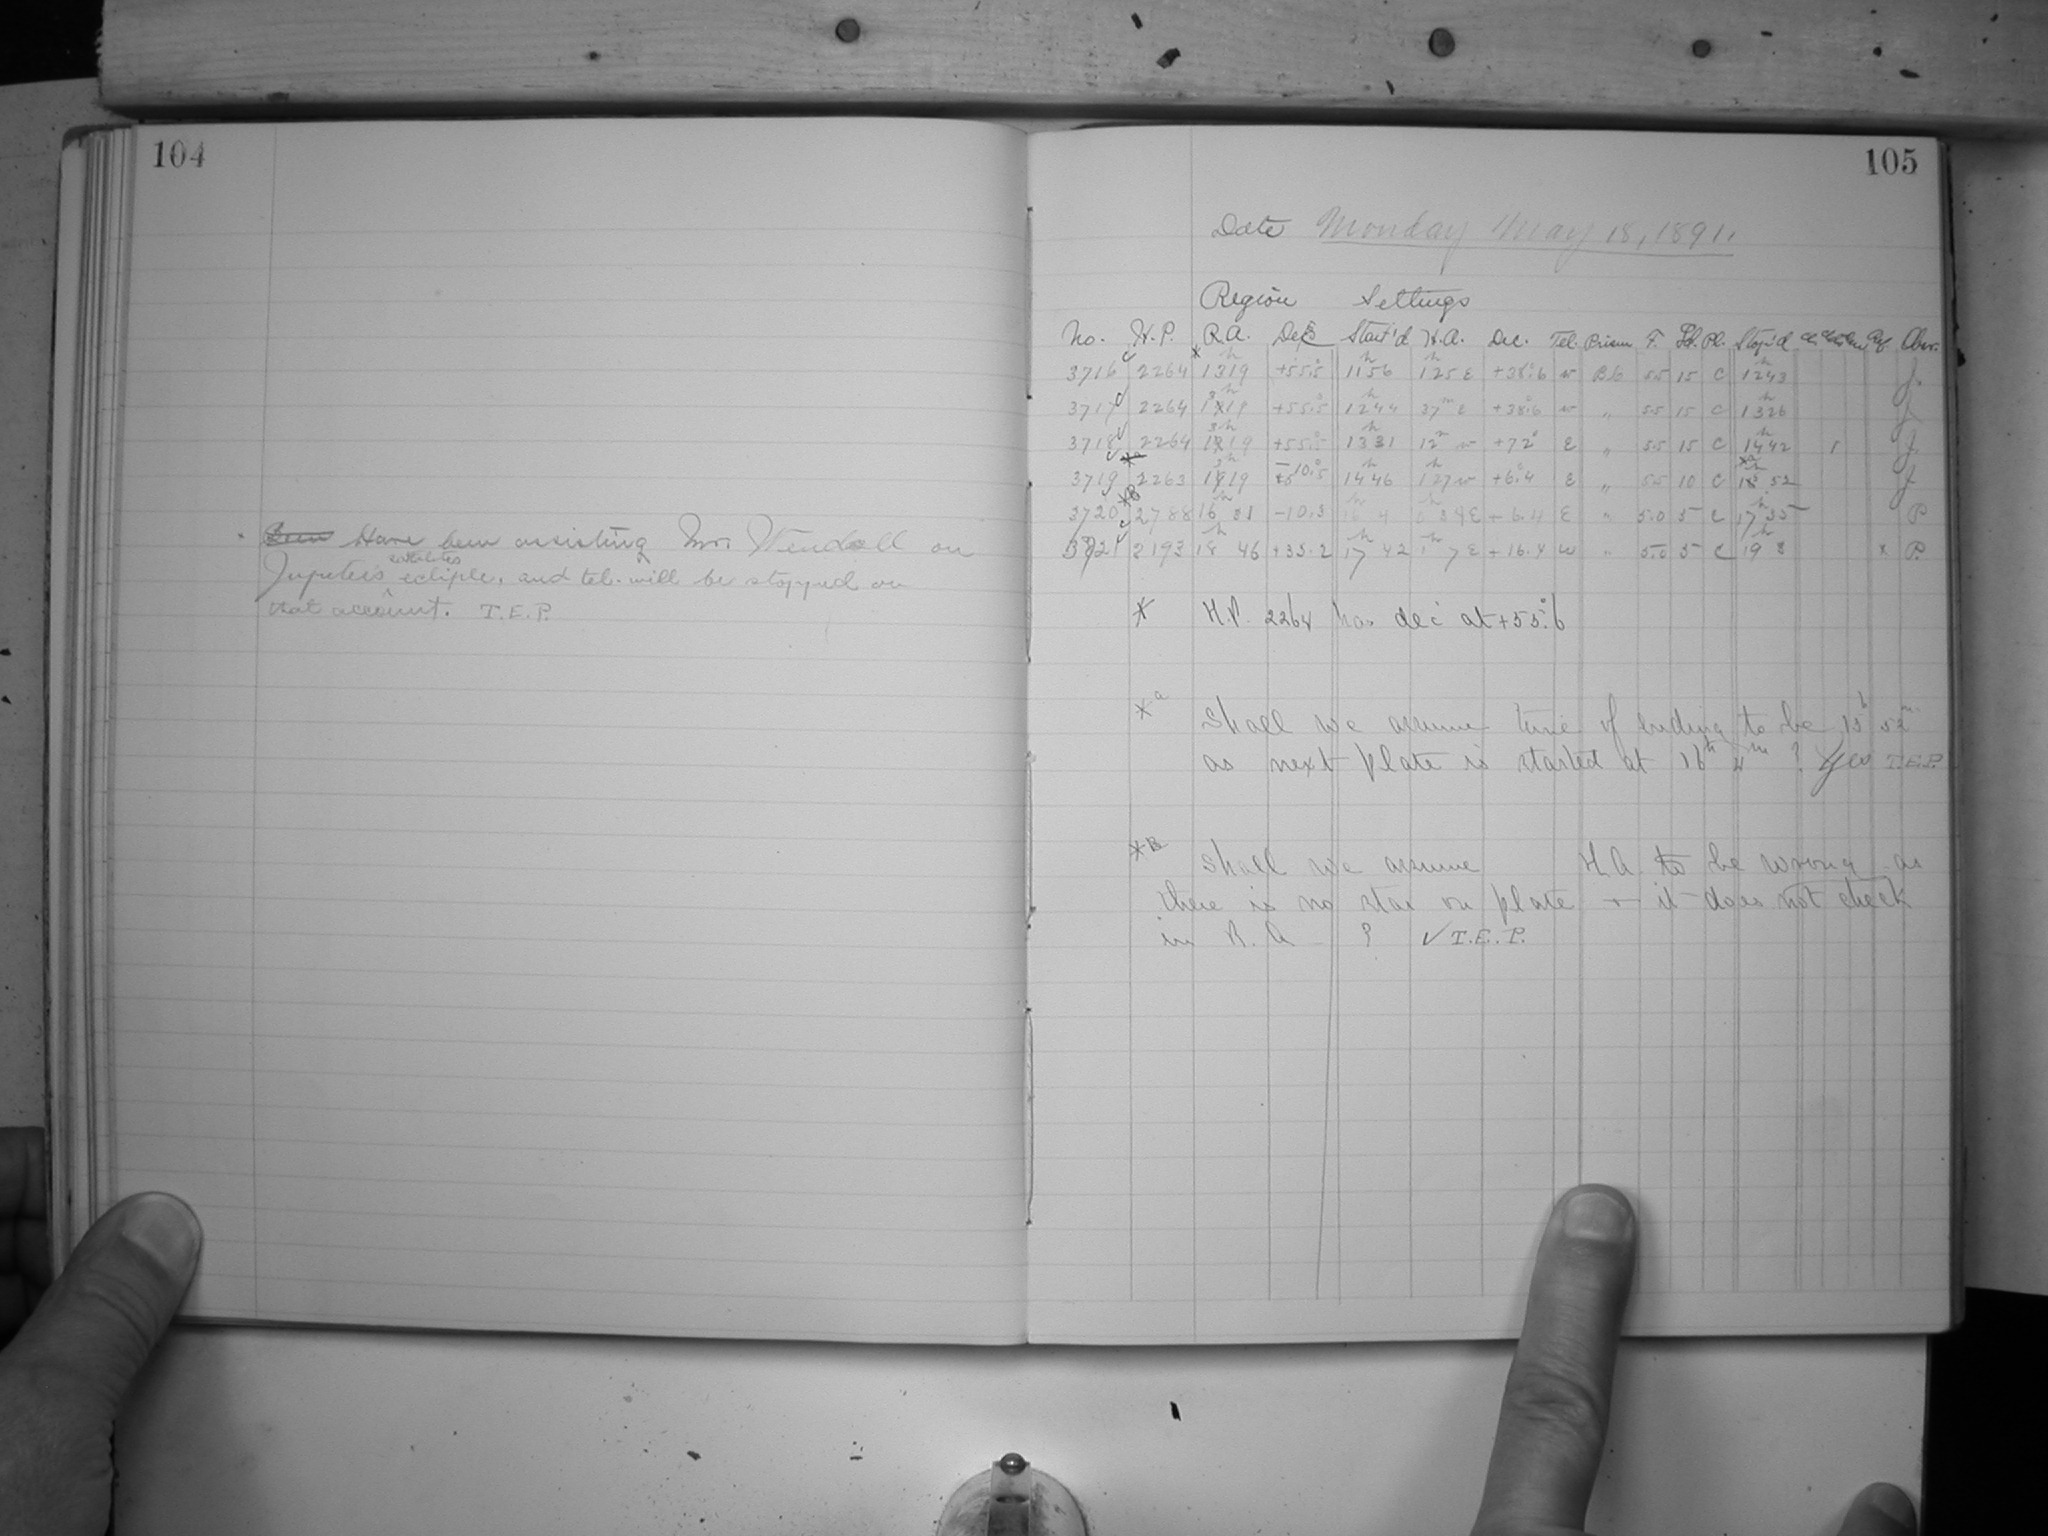 104
Have been assisting Mr. Wendell on
Jupiter's satellites eclipse, and tel. will be stopped on
that account. T.E.P.
105
Date Monday May 18, 1891.
Region Settings
No. H.P. R.A. Dec. Start'd H.A. Dec. Tel. Prism F. Pl. Stop'd Obsr.
3716 2264 1319 +55.5 1156 125 E +38.6 w 55 15 C 1243 J.
3717 2264 1319 +55.5 1244 37m E +38.6 w " 55 15 C 1326 J.
3718 2264 1319 +55.5 1331 12m w +72° E " 55 15 C 1442 J.
3719 2263 -10.5 1446 127 w +6.4 E " 55 10 C 52 J
3720 2788 16 31 -10.3 16 4 E +6.4 E " 5.0 5 C 17 35 P
3721 2193 18 46 +35.2 17 42 1h 7 E +16.4 w " 5.0 5 C 19 8 x P.
* H.P. 2264 has dec at +55.6
*a Shall we assume time of ending to be 15h 52m
as next plate is started at 16h 4m ? Yes T.E.P.
*B Shall we assume H.A. to be wrong as
there is no star on plate + it does not check
in R.A. ? ✓ T.E.P.